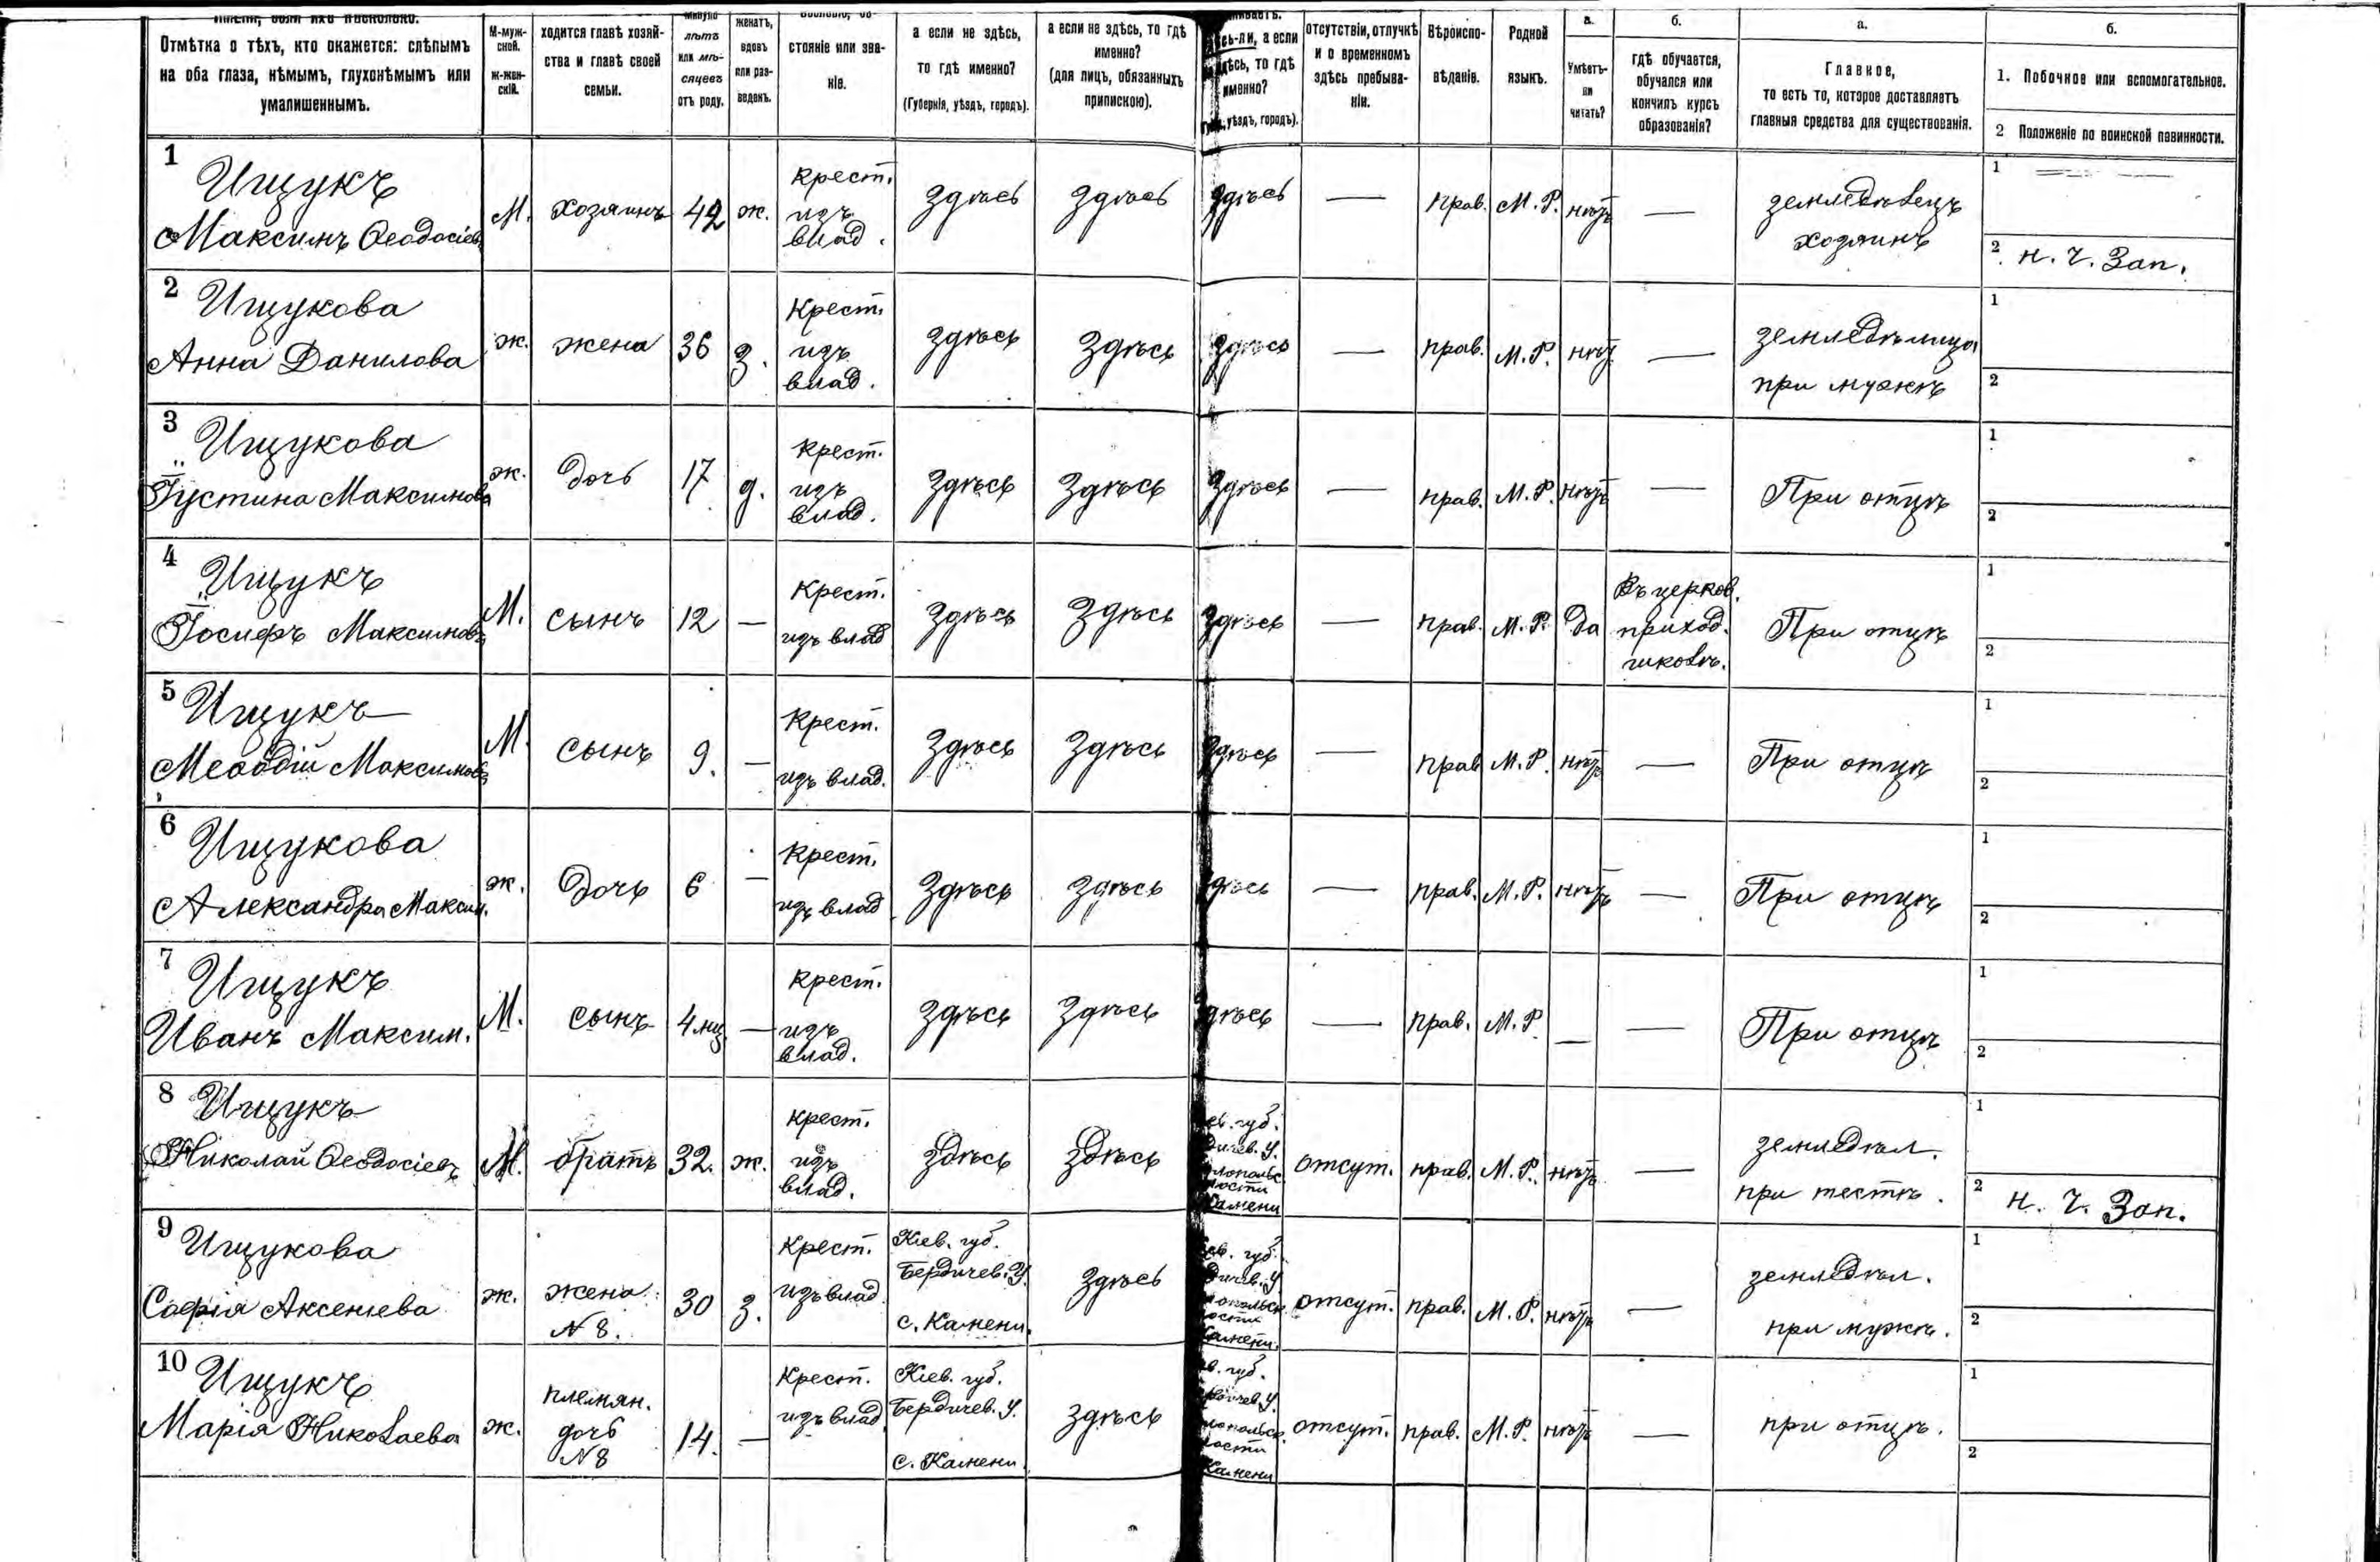 Отмѣтка о тѣхъ, кто окажется: слѣпымъ
на оба глаза, нѣмымъ, глухонѣмымъ или
умалишеннымъ.
М-муж-
ской.
ж-жен-
скій.
ходится главѣ хозяй-
ства и главѣ своей
семьи.
лѣтъ
или мѣ-
сяцевъ
отъ роду.
женатъ,
вдовъ
или раз-
веденъ.
стояніе или зва-
ніе.
а если не здѣсь,
то гдѣ именно?
(Губернія, уѣздъ, городъ).
а если не здѣсь, то гдѣ
именно?
(для лицъ, обязанныхъ
припискою).
а если
то гдѣ
именно?
уѣздъ, городъ).
отсутствіи, отлучкѣ
и о временномъ
здѣсь пребыва-
ніи.
Вѣроиспо-
вѣданіе.
Родной
языкъ.
а.
Умѣетъ-
ли
читать?
б.
гдѣ обучается,
обучался или
кончилъ курсъ
образованія?
а.
Главное,
то есть то, которое доставляетъ
главныя средства для существованія.
б.
1. Побочное или вспомогательное.
2 Положеніе по воинской повинности.
1
Ищукъ
Максимъ Ѳеодосіев
М.
хозяинъ
42
ж.
крест.
изъ
влад.
здѣсь
здѣсь
здѣсь
—
прав.
М. Р.
нѣтъ
—
земледѣлецъ
хозяинъ
1
2 н. ч. Зап.
2
Ищукова
Анна Данилова
ж.
жена
36
з.
Крест.
изъ
влад.
здѣсь
здѣсь
здѣсь
—
прав.
М. Р.
нѣт
—
земледѣлица
при мужѣ
1
2
3
Ищукова
Іустина Максимова
ж.
дочь
17
д.
крест.
изъ
влад.
здѣсь
здѣсь
здѣсь
—
прав.
М. Р.
нѣтъ
—
При отцѣ
1
2
4
Ищукъ
Іосифъ Максимовъ
М.
сынъ
12
—
Крест.
изъ влад
здѣсь
здѣсь
здѣсь
—
прав.
М. Р.
Да
Въ церков.
приход.
школѣ.
При отцѣ
1
2
5
Ищукъ
Меѳодій Максимовъ
М.
сынъ
9.
—
Крест.
изъ влад.
здѣсь
здѣсь
здѣсь
—
прав
М. Р.
нѣтъ
—
При отцѣ
1
2
6
Ищукова
Александра Максим.
ж.
Дочь
6
—
Крест.
изъ влад
здѣсь
здѣсь
здѣсь
—
прав.
М. Р.
нѣтъ
—
При отцѣ
1
2
7
Ищукъ
Иванъ Максим.
М.
сынъ
4 мц.
—
Крест.
изъ
влад.
здѣсь
здѣсь
здѣсь
—
прав.
М. Р.
—
—
При отцѣ
1
2
8
Ищукъ
Николай Ѳеодосіевъ
М.
братъ
32.
ж.
Крест.
изъ
влад.
здѣсь
здѣсь
ев. губ.
дичев. У.
лопольс.
лости
Камени
отсут.
прав.
М. Р.
нѣтъ
—
земледѣл.
при тестѣ.
1
2 н. ч. Зап.
9
Ищукова
Софія Аксеніева
ж.
жена
№ 8.
30
з.
Крест.
изъ влад
Кіев. губ.
Бердичев. У.
с. Камени.
здѣсь
ев. губ.
дичев. У
опольск.
ости
Камени.
отсут.
прав.
М. Р.
нѣтъ
—
земледѣл.
при мужѣ.
1
2
10
Ищукъ
Марія Николаева
ж.
племян.
дочь
№ 8
14.
—
Крест.
изъ влад
Кіев. губ.
Бердичев. У.
с. Камени.
здѣсь
в. губ.
дичев. У.
лопольск.
лости
Камени
отсут.
прав.
М. Р.
нѣтъ
—
при отцѣ.
1
2